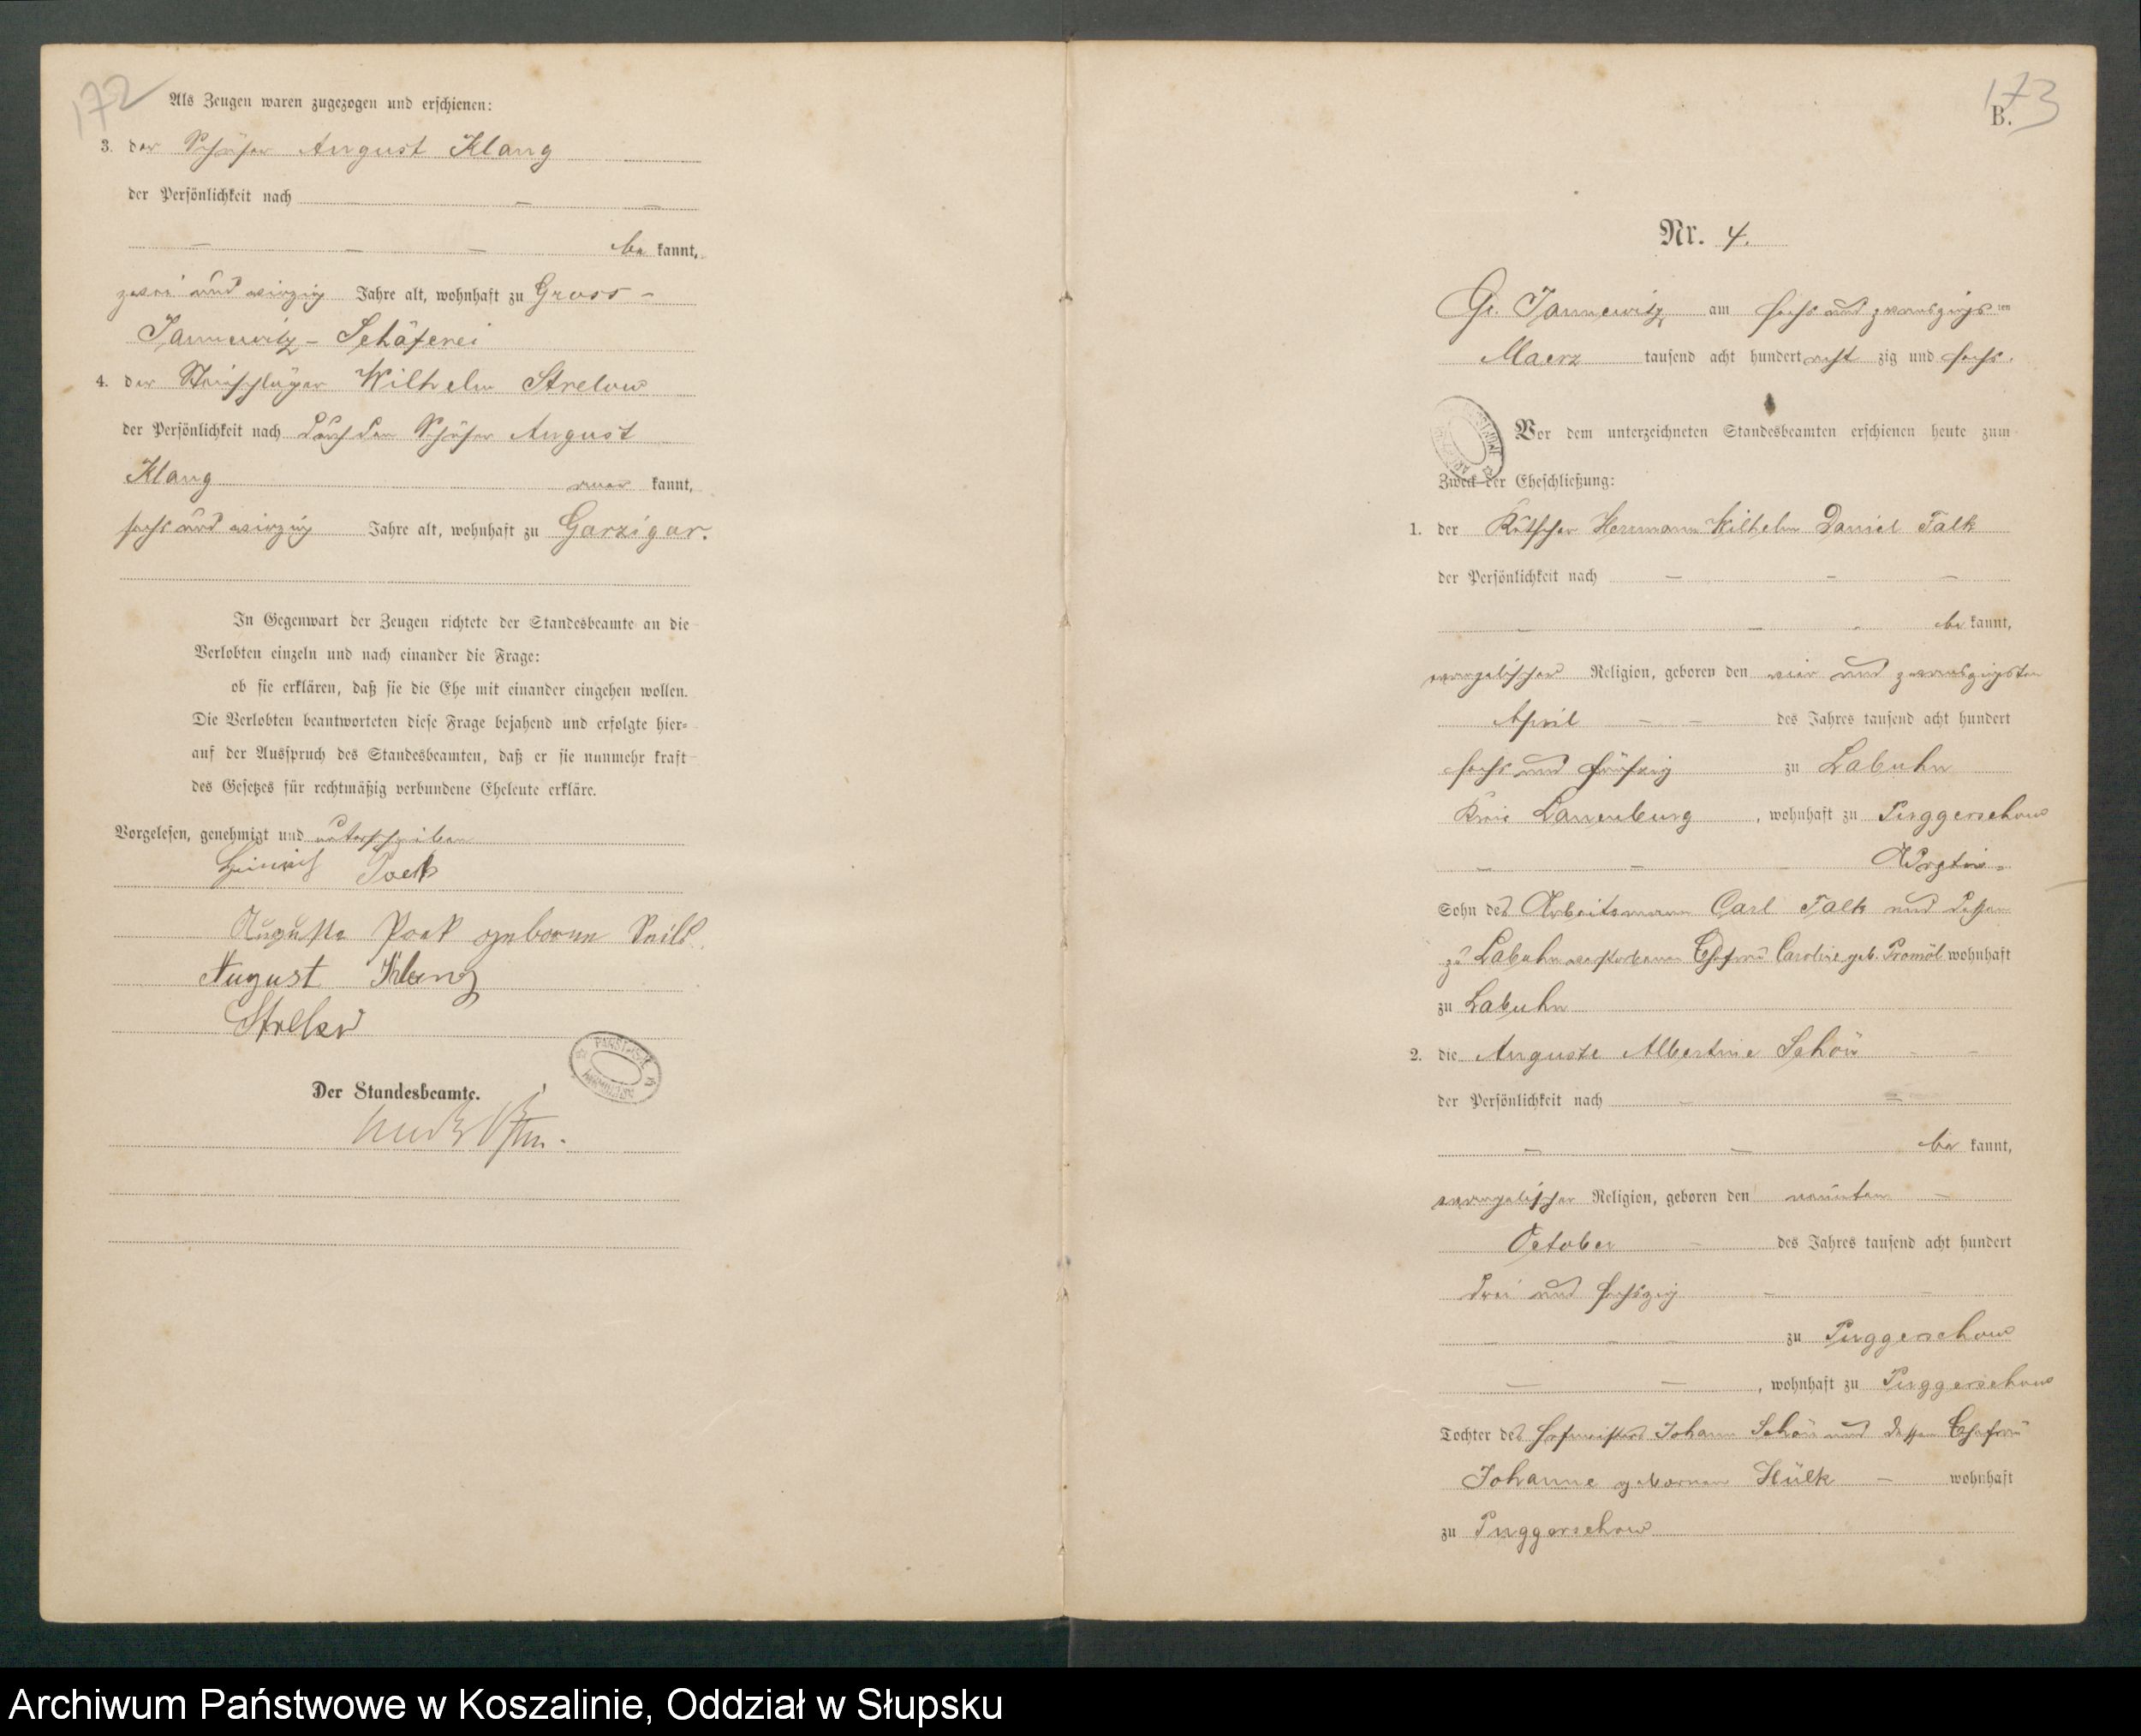 172
Als Zeugen waren zugezogen und erschienen:
3. der Schäfer August Klang
der Persönlichkeit nach — —
— — — be kannt,
zwei und vierzig Jahre alt, wohnhaft zu Gross-
Jannewitz-Schäferei
4. der Steinschläger Wilhelm Strelow
der Persönlichkeit nach durch den Schäfer August
Klang aner kannt,
sechs und vierzig Jahre alt, wohnhaft zu Garzigar.
In Gegenwart der Zeugen richtete der Standesbeamte an die
Verlobten einzeln und nach einander die Frage:
ob sie erklären, daß sie die Ehe mit einander eingehen wollen.
Die Verlobten beantworteten diese Frage bejahend und erfolgte hier-
auf der Ausspruch des Standesbeamten, daß er sie nunmehr kraft
des Gesetzes für rechtmäßig verbundene Eheleute erkläre.
Vorgelesen, genehmigt und unterschrieben
Heinrich
Auguste geborene
August Klang
Strelow
Der Standesbeamte.
173
B.
Nr. 4.
Gr. Jannewitz, am sechs und zwanzigsten
Maerz tausend acht hundert acht zig und sechs.
Vor dem unterzeichneten Standesbeamten erschienen heute zum
Zweck der Eheschließung:
1. der Kutscher Hermann Wilhelm Daniel Falk
der Persönlichkeit nach — — —
— — — be kannt,
evangelischer Religion, geboren den vier und zwanzigsten
April — — des Jahres tausend acht hundert
sechs und fünfzig zu Labuhn
Kreis Lauenburg, wohnhaft zu Puggerschow
— — —
Sohn des Arbeitsmann Carl Falk und dessen
zu Labuhn verstorbenen Ehefrau Caroline geb. wohnhaft
zu Labuhn
2. die Auguste Albertine Schön — —
der Persönlichkeit nach — —
— — be kannt,
evangelischer Religion, geboren den neunten —
October — des Jahres tausend acht hundert
drei und sechszig — —
— — — zu Puggerschow
— —, wohnhaft zu Puggerschow
Tochter des Hofmeisters Johann Schön und dessen Ehefrau
Johanne gebornen Hülk — wohnhaft
zu Puggerschow
Archiwum Państwowe w Koszalinie, Oddział w Słupsku